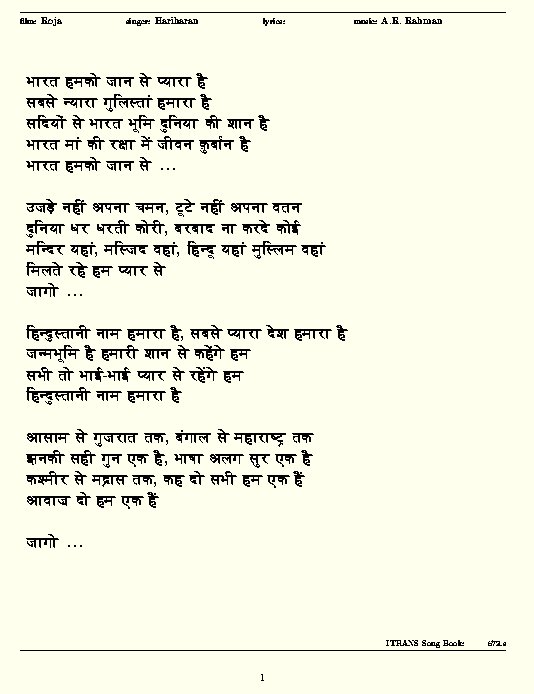 film: Roja singer: Hariharan lyrics: music: A.R. Rahman
भारत हमको जान से प्यारा है
सबसे न्यारा गुलिस्तां हमारा है
सदियों से भारत भूमि दुनिया की शान है
भारत मां की रक्षा में जीवन क़ुर्बान है
भारत हमको जान से ...
उजड़े नहीं अपना चमन, टूटे नहीं अपना वतन
दुनिया धर धरती कोरी, बरबाद ना करदे कोई
मन्दिर यहां, मस्जिद वहां, हिन्दू यहां मुस्लिम वहां
मिलते रहे हम प्यार से
जागो ...
हिन्दुस्तानी नाम हमारा है, सबसे प्यारा देश हमारा है
जन्मभूमि है हमारी शान से कहेंगे हम
सभी तो भाई-भाई प्यार से रहेंगे हम
हिन्दुस्तानी नाम हमारा है
आसाम से गुजरात तक, बंगाल से महाराष्ट्र तक
झनकी सही गुन एक है, भाषा अलग सुर एक है
कश्मीर से मद्रास तक, कह दो सभी हम एक हैं
आवाज दो हम एक हैं
जागो ...
ITRANS Song Book 672.s
1